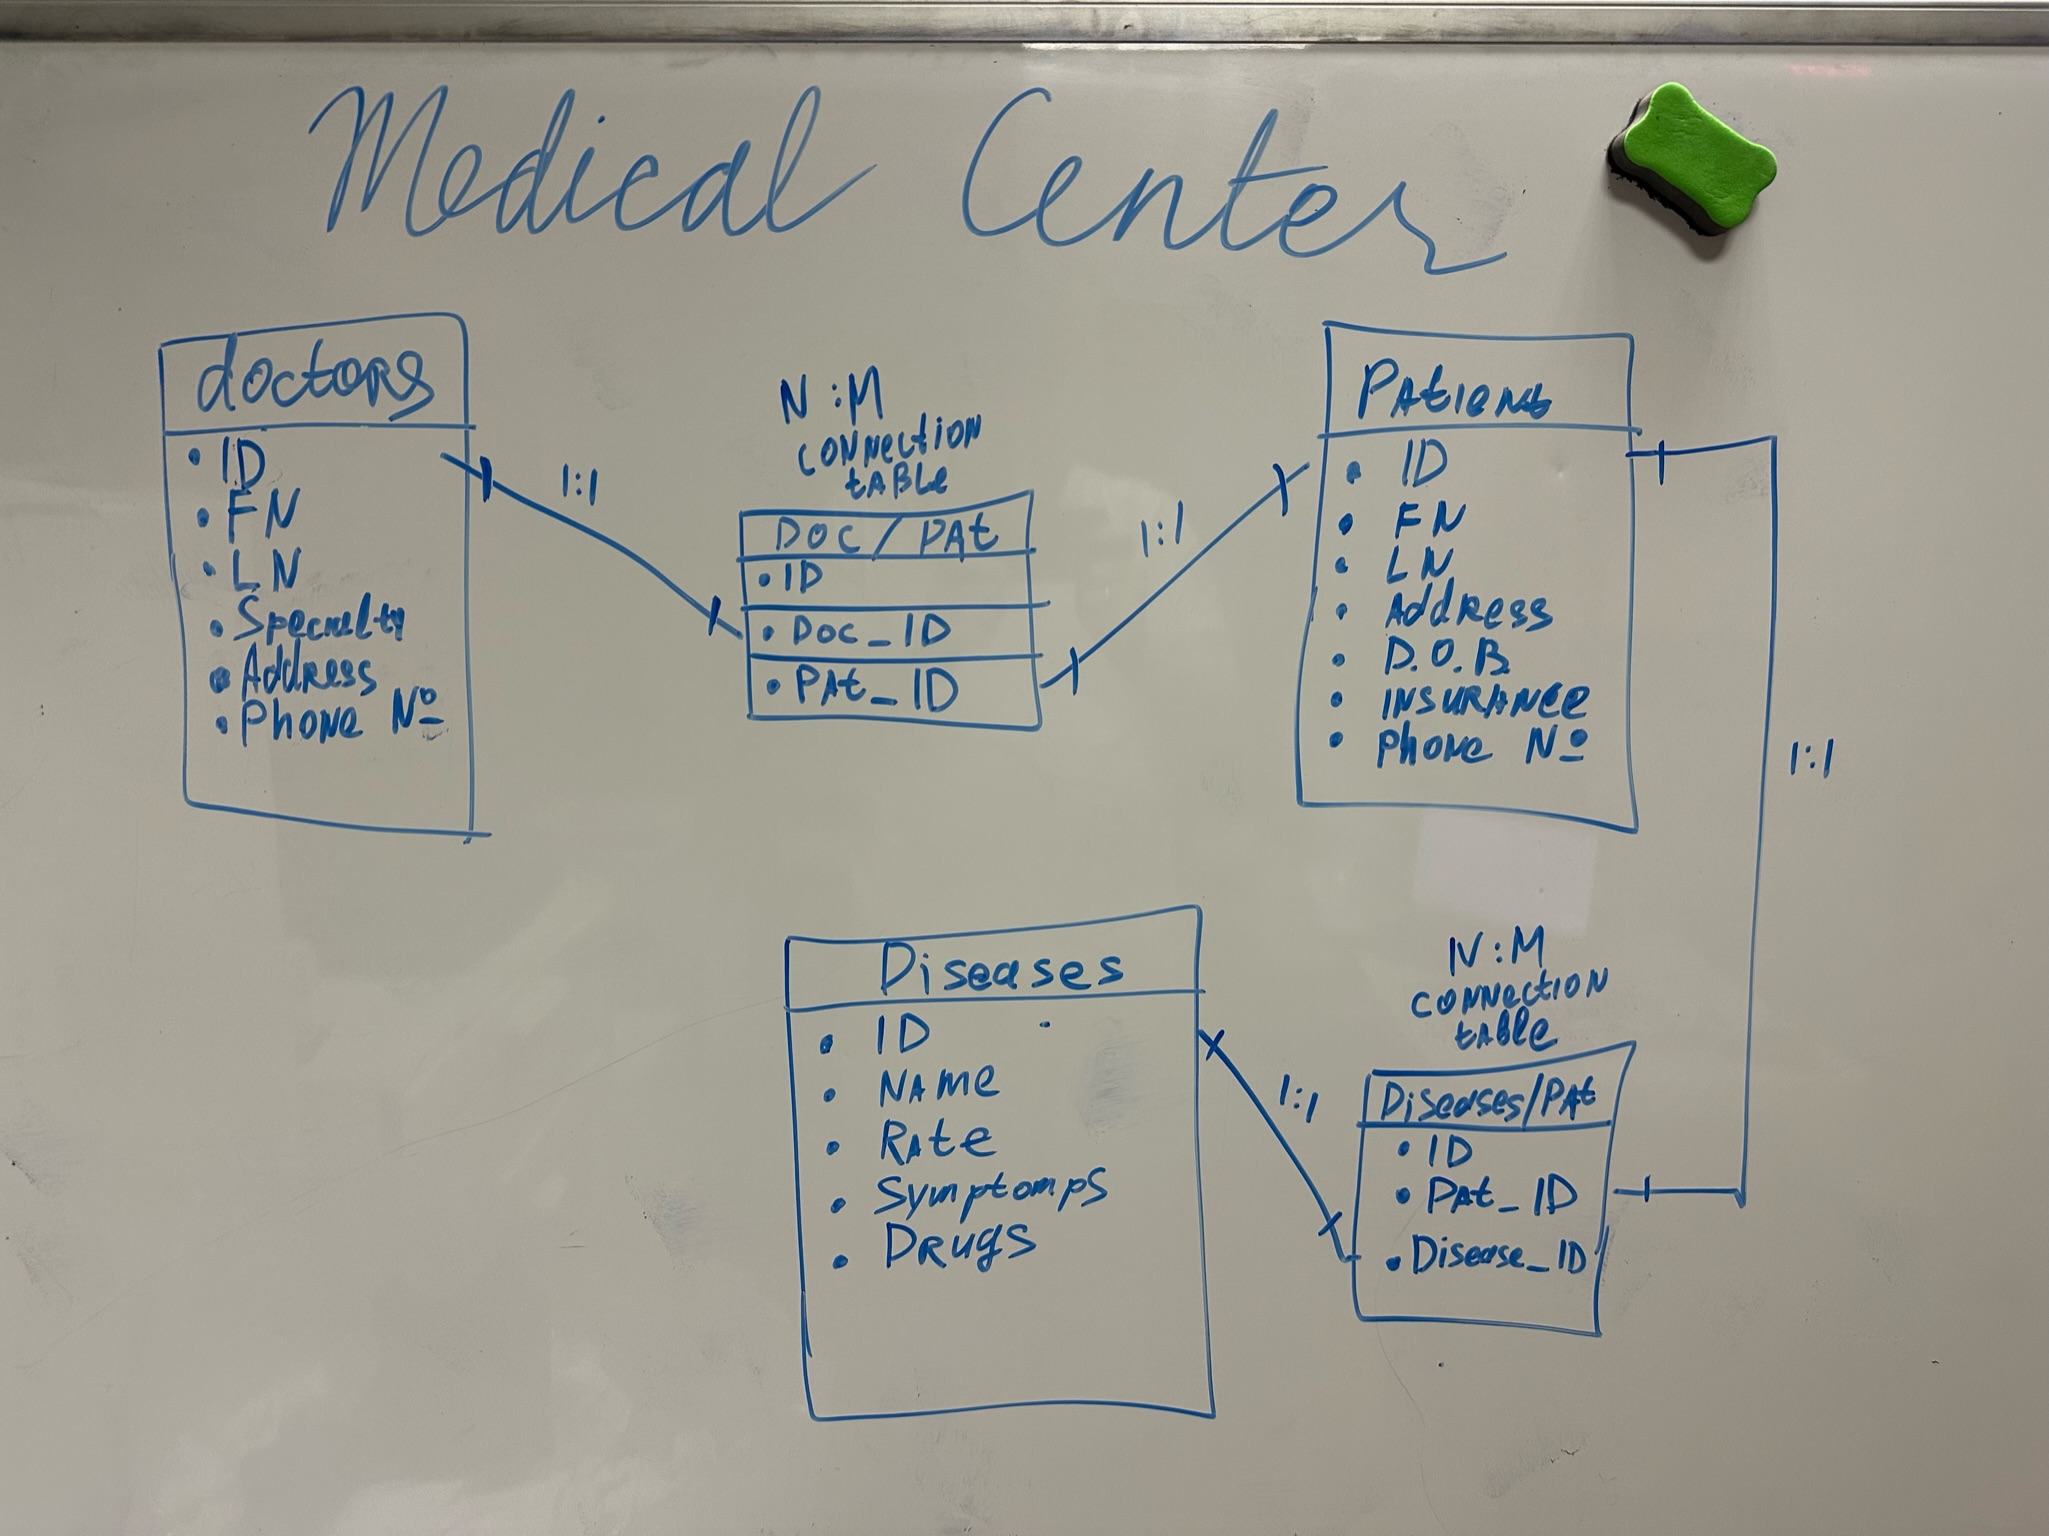 Medical Center
doctors
• ID
• FN
• LN
• Specialty
• Address
• Phone №
1:1
N:M
connection
table
Doc / Pat
• ID
• Doc_ID
• Pat_ID
1:1
Patients
• ID
• FN
• LN
• Address
• D.O.B.
• Insurance
• Phone №
1:1
Diseases
• ID
• Name
• Rate
• Symptomps
• Drugs
1:1
N:M
connection
table
Diseases/Pat
• ID
• Pat_ID
• Disease_ID